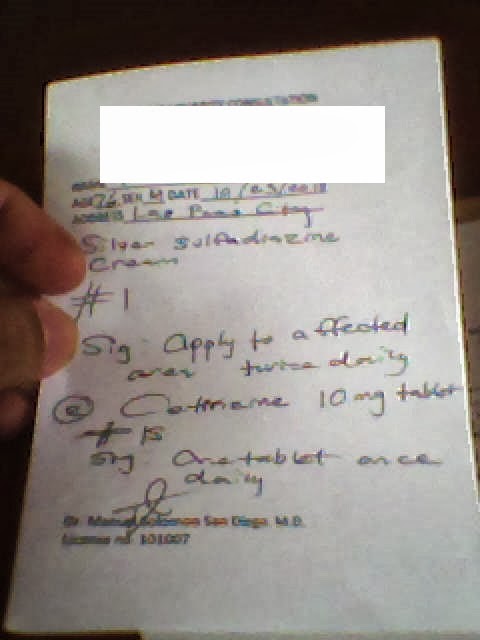 CONSULTATION
AGE 76 SEX M DATE 10/03/2018
ADDRESS Las Piñas City
Silver Sulfadiazine
Cream
# 1
Sig: Apply to affected
area twice daily
② Cetirizine 10 mg tablet
# 15
Sig: One tablet once
daily
Dr. Manuel San Diego, M.D.
License no. 101007